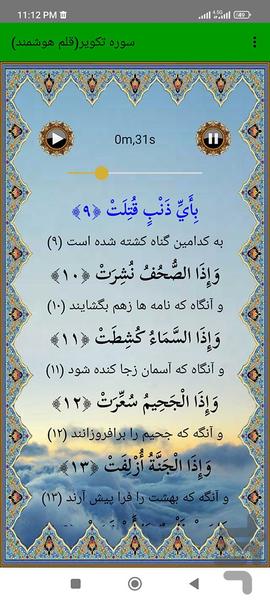 11:12 PM
سوره تکویر(قلم هوشمند)
0m,31s
بِأَيِّ ذَنْبٍ قُتِلَتْ ﴿۹﴾
به کدامین گناه کشته شده است (۹)
وَإِذَا الصُّحُفُ نُشِرَتْ ﴿۱۰﴾
و آنگاه که نامه ها زهم بگشایند (۱۰)
وَإِذَا السَّمَاءُ كُشِطَتْ ﴿۱۱﴾
و آنگاه که آسمان زجا کنده شود (۱۱)
وَإِذَا الْجَحِيمُ سُعِّرَتْ ﴿۱۲﴾
و آنگه که جحیم را برافروزانند (۱۲)
وَإِذَا الْجَنَّةُ أُزْلِفَتْ ﴿۱۳﴾
و آنگه که بهشت را فرا پیش آرند (۱۳)